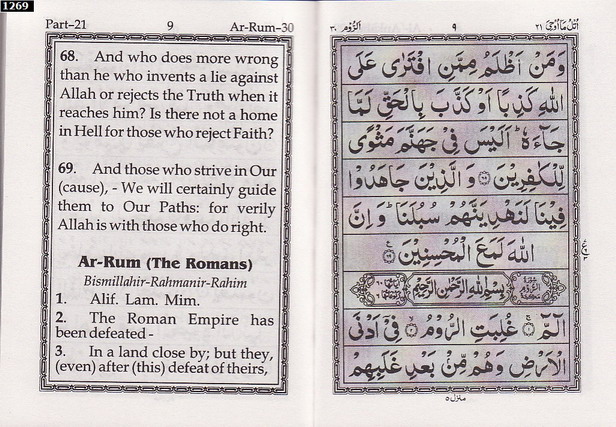 1269
Part–21 9 Ar-Rum–30
68. And who does more wrong
than he who invents a lie against
Allah or rejects the Truth when it
reaches him? Is there not a home
in Hell for those who reject Faith?
69. And those who strive in Our
(cause), - We will certainly guide
them to Our Paths: for verily
Allah is with those who do right.
Ar-Rum (The Romans)
Bismillahir-Rahmanir-Rahim
1. Alif. Lam. Mim.
2. The Roman Empire has
been defeated -
3. In a land close by; but they,
(even) after (this) defeat of theirs,
اُتْلُ مَآ اُوْحِیَ ٢١ ٩ اَلرُّوْم ٣٠
وَمَنْ اَظْلَمُ مِمَّنِ افْتَرٰى عَلَى
اللّٰهِ كَذِبًا اَوْ كَذَّبَ بِالْحَقِّ لَمَّا
جَآءَهٗ ؕ اَلَيْسَ فِيْ جَهَنَّمَ مَثْوًى
لِّلْكٰفِرِيْنَ ۝٦٨ وَ الَّذِيْنَ جَاهَدُوْا
فِيْنَا لَنَهْدِيَنَّهُمْ سُبُلَنَا ؕ وَ اِنَّ
اللّٰهَ لَمَعَ الْمُحْسِنِيْنَ ۝٦٩
بِسْمِ اللّٰهِ الرَّحْمٰنِ الرَّحِيْمِ
الٓمّٓ ۝١ غُلِبَتِ الرُّوْمُ ۝٢ فِيْٓ اَدْنَى
الْاَرْضِ وَهُمْ مِّنْۢ بَعْدِ غَلَبِهِمْ
منزل ٥